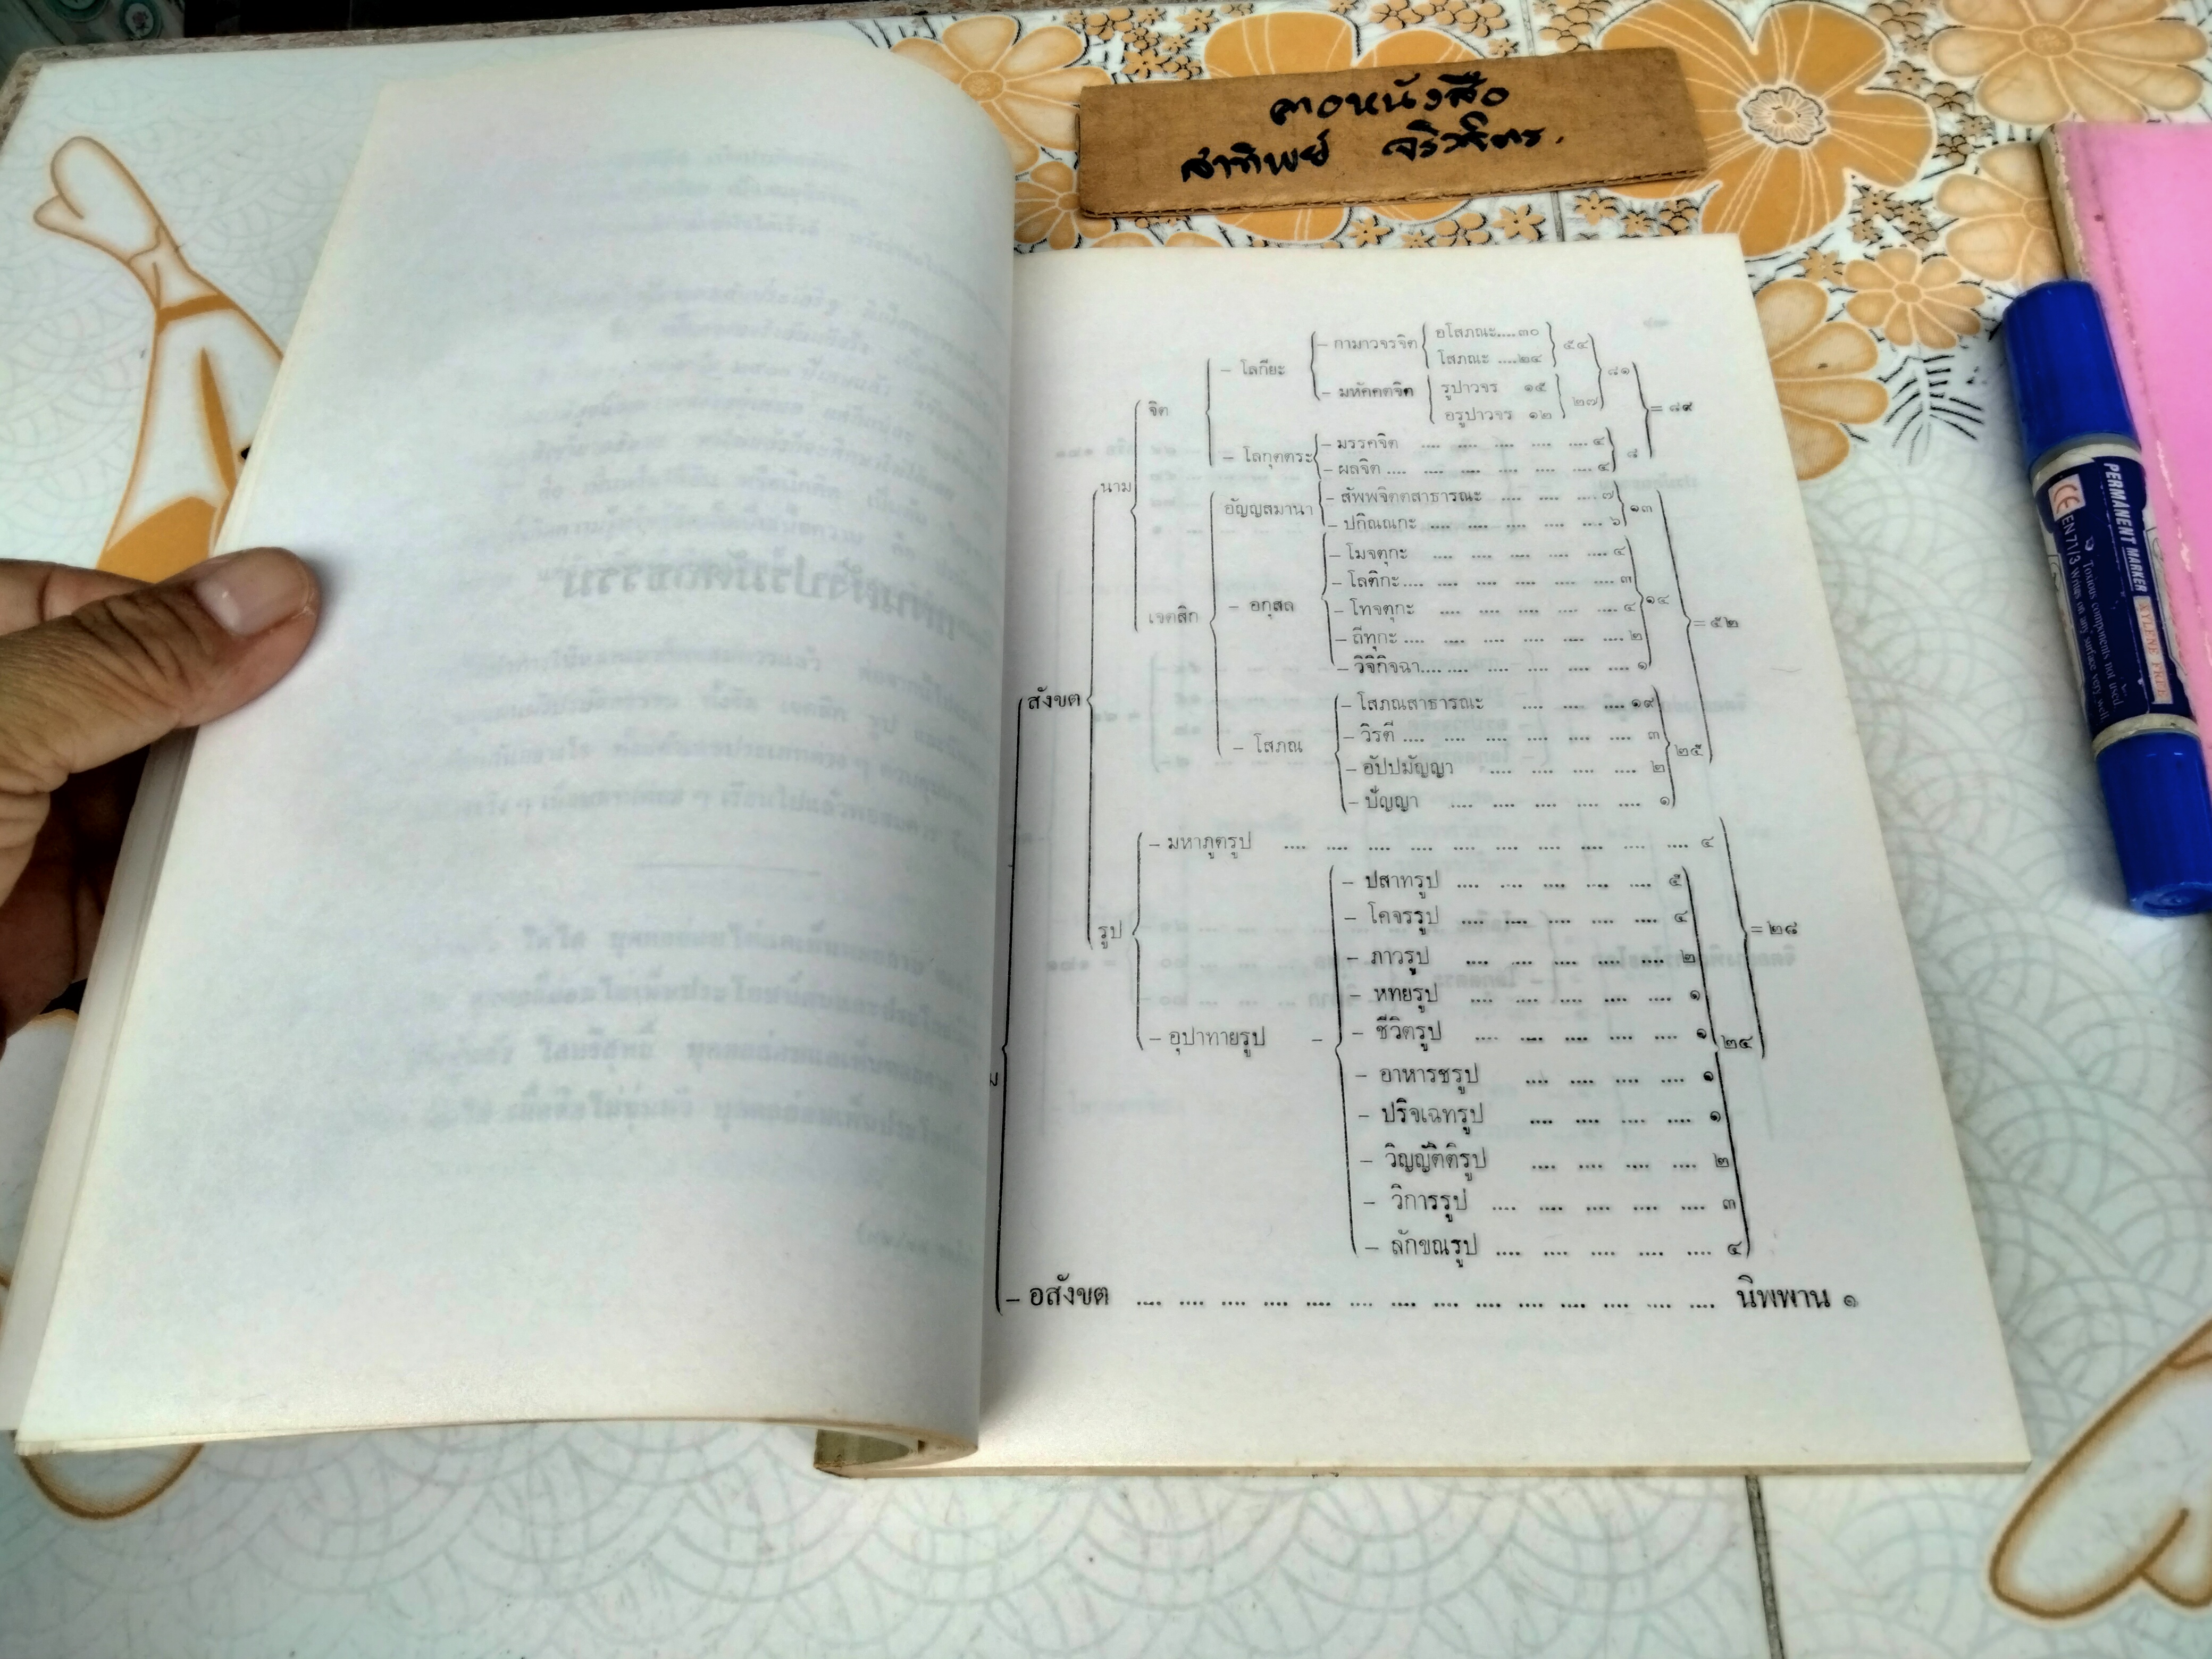 ลาอหนังสือ
สาทิพย์ จริวจิตร.
- กามาวจรจิต อโสภณะ....๓๐
โสภณะ ....๒๔ ๕๔
- โลกียะ ๘๑
- มหัคคตจิต รูปาวจร ๑๕
อรูปาวจร ๑๒ ๒๗
จิต = ๘๙
- โลกุตตระ - มรรคจิต .... .... .... .... ๔
- ผลจิต .... .... .... .... .... ๔ ๘
นาม
อัญญสมานา - สัพพจิตตสาธารณะ .... .... .... ๗
- ปกิณณกะ .... .... .... .... .... ๖ ๑๓
- โมจตุกะ .... .... .... .... .... ๔
- โลติกะ .... .... .... .... .... ๓
- อกุสล - โทจตุกะ .... .... .... .... .... ๔ ๑๔
เจตสิก = ๕๒
- ถีทุกะ .... .... .... .... .... ๒
- วิจิกิจฉา .... .... .... .... .... ๑
สังขต
- โสภณสาธารณะ .... .... .... ๑๙
- วิรตี .... .... .... .... .... .... ๓
- โสภณ ๒๕
- อัปปมัญญา .... .... .... .... ๒
- ปัญญา .... .... .... .... .... ๑
- มหาภูตรูป .... .... .... .... .... .... .... .... .... .... ๔
- ปสาทรูป .... .... .... .... .... ๕
- โคจรรูป .... .... .... .... .... ๔
รูป = ๒๘
- ภาวรูป .... .... .... .... .... ๒
- หทยรูป .... .... .... .... .... ๑
- อุปาทายรูป - - ชีวิตรูป .... .... .... .... .... ๑ ๒๔
ม
- อาหารชรูป .... .... .... .... ๑
- ปริจเฉทรูป .... .... .... .... ๑
- วิญญัติติรูป .... .... .... .... ๒
- วิการรูป .... .... .... .... .... ๓
- ลักขณรูป .... .... .... .... .... ๔
- อสังขต .... .... .... .... .... .... .... .... .... .... .... .... .... .... นิพพาน ๑
PERMANENT MARKER XYLENE FREE
CE EN71/3 Writes on any surface very well
Toxious components not used